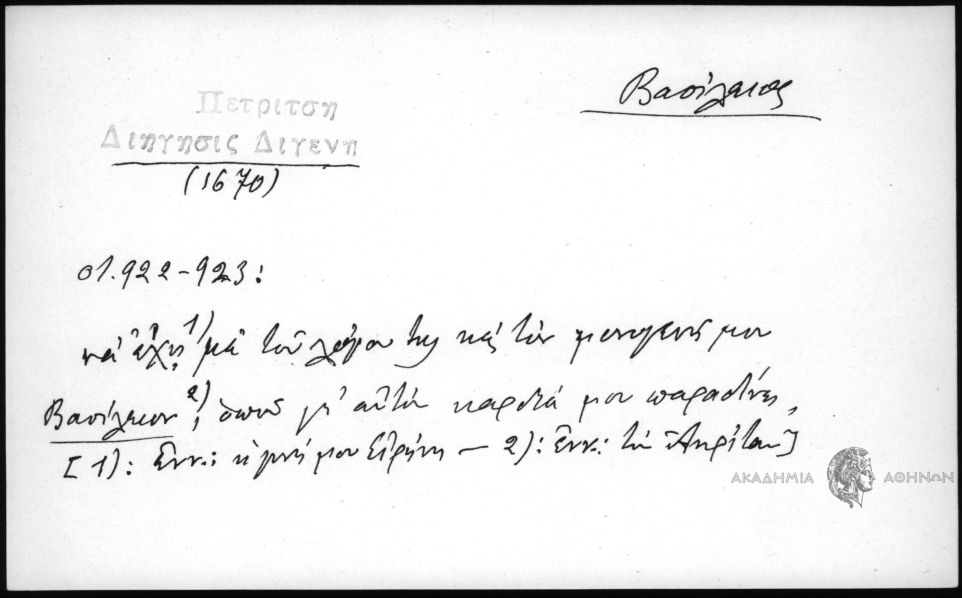 Βασίλειος
Πετριτση
Διηγησις Διγενη
(1670)
στ. 922-923:
νά ἔχῃ 1) μὲ τοῦ λόγου της καὶ τὸν μονογενῆ μου
Βασίλειον 2), ὁποῦ γι' αὐτὸν καρδιά μου
[1): Ἐνν.: ἡ μου Εἰρήνη – 2): Ἐνν.: τὸν Ἀκρίταν]
ΑΚΑΔΗΜΙΑ ΑΘΗΝΩΝ